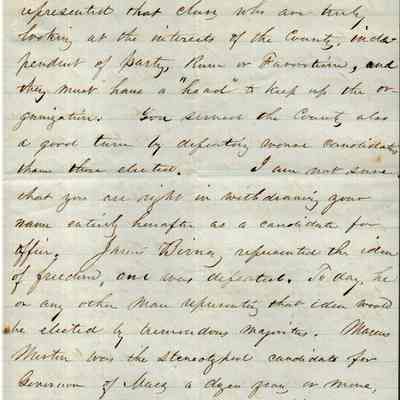 represented that class who are truly
looking at the interests of the County, inde-
pendent of party, Rum or Favoritism, and
they must have a "head" to keep up the or
ganization. You served the County also
a good turn by defeating worse candidates
than those elected. I am not sure
that you are right in withdrawing your
name entirely hereafter as a candidate for
office. James Birney represented the idea
of freedom, and was defeated. To day, he
or any other man representing that idea would
be elected by tremendous majorities. Marcus
Morton was the stereotyped candidate for
Governor of Mass a dozen years or more,